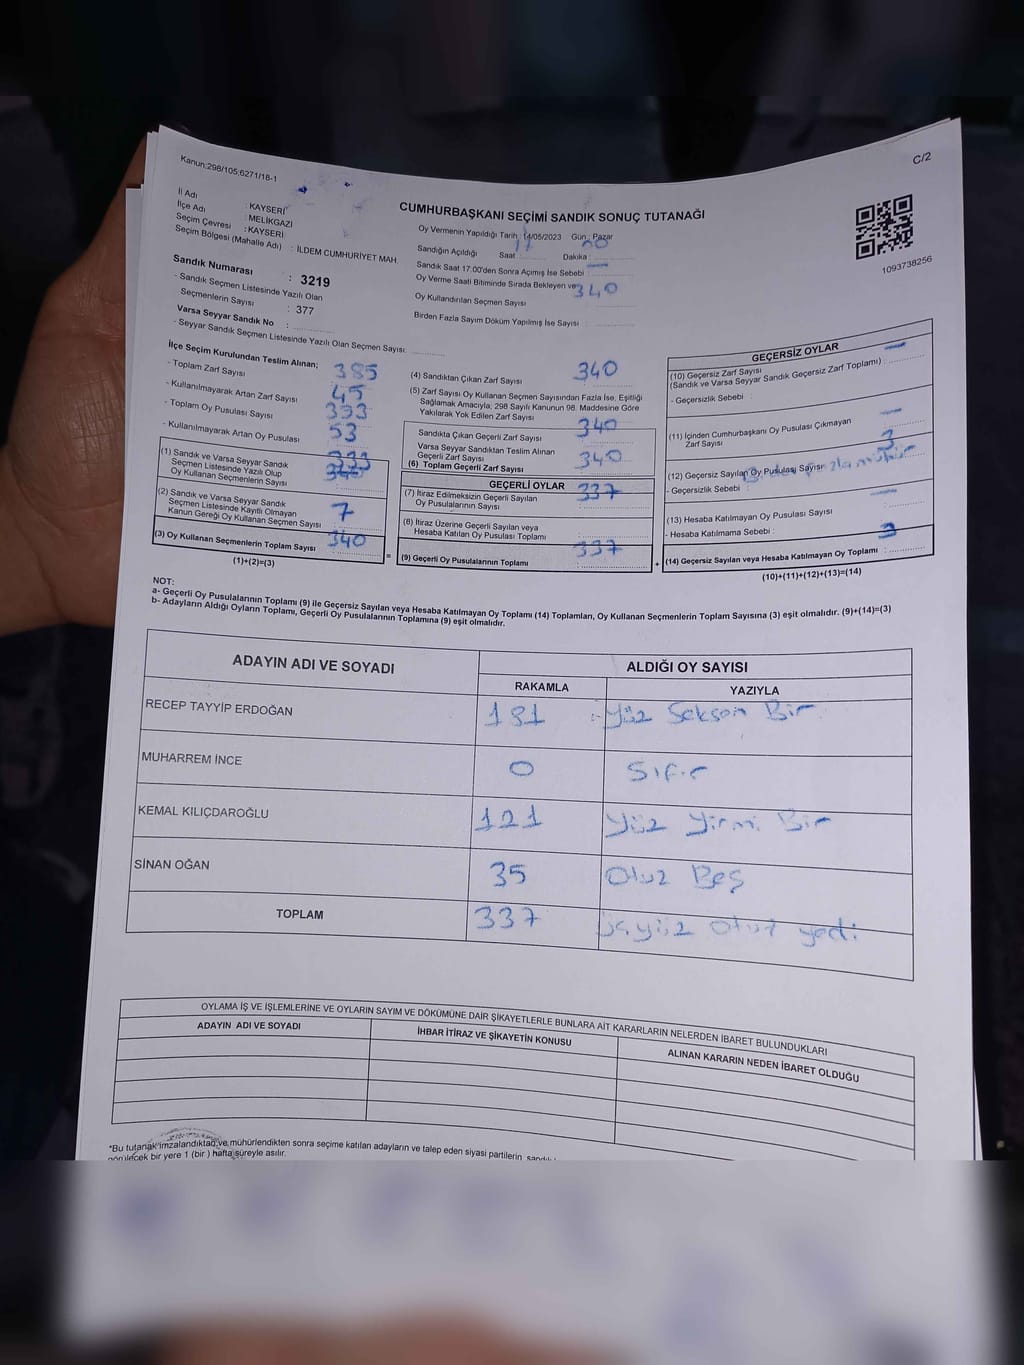 Kanun:298/105;6271/18-1
C/2
CUMHURBAŞKANI SEÇİMİ SANDIK SONUÇ TUTANAĞI
1093738256
İl Adı : KAYSERİ
İlçe Adı : MELİKGAZİ
Seçim Çevresi : KAYSERİ
Seçim Bölgesi (Mahalle Adı) : İLDEM CUMHURİYET MAH.
Sandık Numarası : 3219
- Sandık Seçmen Listesinde Yazılı Olan
Seçmenlerin Sayısı : 377
Varsa Seyyar Sandık No :
- Seyyar Sandık Seçmen Listesinde Yazılı Olan Seçmen Sayısı:
Oy Vermenin Yapıldığı Tarih : 14/05/2023 Gün : Pazar
Sandığın Açıldığı Saat : 17 Dakika : 00
Sandık Saat 17.00'den Sonra Açımış İse Sebebi : —
Oy Verme Saati Bitiminde Sırada Bekleyen ve
Oy Kullandırılan Seçmen Sayısı : 340
Birden Fazla Sayım Döküm Yapılmış İse Sayısı :
İlçe Seçim Kurulundan Teslim Alınan;
- Toplam Zarf Sayısı 385
- Kullanılmayarak Artan Zarf Sayısı 45
- Toplam Oy Pusulası Sayısı 393
- Kullanılmayarak Artan Oy Pusulası 53
(1) Sandık ve Varsa Seyyar Sandık
Seçmen Listesinde Yazılı Olup
Oy Kullanan Seçmenlerin Sayısı 333
(2) Sandık ve Varsa Seyyar Sandık
Seçmen Listesinde Kayıtlı Olmayan
Kanun Gereği Oy Kullanan Seçmen Sayısı 7
(3) Oy Kullanan Seçmenlerin Toplam Sayısı 340
(1)+(2)=(3)
(4) Sandıktan Çıkan Zarf Sayısı 340
(5) Zarf Sayısı Oy Kullanan Seçmen Sayısından Fazla İse, Eşitliği
Sağlamak Amacıyla, 298 Sayılı Kanunun 98. Maddesine Göre
Yakılarak Yok Edilen Zarf Sayısı
Sandıkta Çıkan Geçerli Zarf Sayısı 340
Varsa Seyyar Sandıktan Teslim Alınan
Geçerli Zarf Sayısı
(6) Toplam Geçerli Zarf Sayısı 340
GEÇERLİ OYLAR
(7) İtiraz Edilmeksizin Geçerli Sayılan
Oy Pusulalarının Sayısı 337
(8) İtiraz Üzerine Geçerli Sayılan veya
Hesaba Katılan Oy Pusulası Toplamı
(9) Geçerli Oy Pusulalarının Toplamı 337
GEÇERSİZ OYLAR
(10) Geçersiz Zarf Sayısı
(Sandık ve Varsa Seyyar Sandık Geçersiz Zarf Toplamı) : —
- Geçersizlik Sebebi :
(11) İçinden Cumhurbaşkanı Oy Pusulası Çıkmayan
Zarf Sayısı —
(12) Geçersiz Sayılan Oy Pusulası Sayısı 3
- Geçersizlik Sebebi :
(13) Hesaba Katılmayan Oy Pusulası Sayısı —
- Hesaba Katılmama Sebebi :
(14) Geçersiz Sayılan veya Hesaba Katılmayan Oy Toplamı : 3
(10)+(11)+(12)+(13)=(14)
NOT:
a- Geçerli Oy Pusulalarının Toplamı (9) ile Geçersiz Sayılan veya Hesaba Katılmayan Oy Toplamı (14) Toplamları, Oy Kullanan Seçmenlerin Toplam Sayısına (3) eşit olmalıdır. (9)+(14)=(3)
b- Adayların Aldığı Oyların Toplamı, Geçerli Oy Pusulalarının Toplamına (9) eşit olmalıdır.
ADAYIN ADI VE SOYADI ALDIĞI OY SAYISI
RAKAMLA YAZIYLA
RECEP TAYYİP ERDOĞAN 181 Yüz Seksen Bir
MUHARREM İNCE 0 Sıfır
KEMAL KILIÇDAROĞLU 121 Yüz Yirmi Bir
SİNAN OĞAN 35 Otuz Beş
TOPLAM 337 üçyüz otuz yedi
OYLAMA İŞ VE İŞLEMLERİNE VE OYLARIN SAYIM VE DÖKÜMÜNE DAİR ŞİKAYETLERLE BUNLARA AİT KARARLARIN NELERDEN İBARET BULUNDUKLARI
ADAYIN ADI VE SOYADI İHBAR İTİRAZ VE ŞİKAYETİN KONUSU ALINAN KARARIN NEDEN İBARET OLDUĞU
*Bu tutanak imzalandıktan ve mühürlendikten sonra seçime katılan adayların ve talep eden siyasi partilerin
görülecek bir yere 1 (bir ) hafta süreyle asılır.